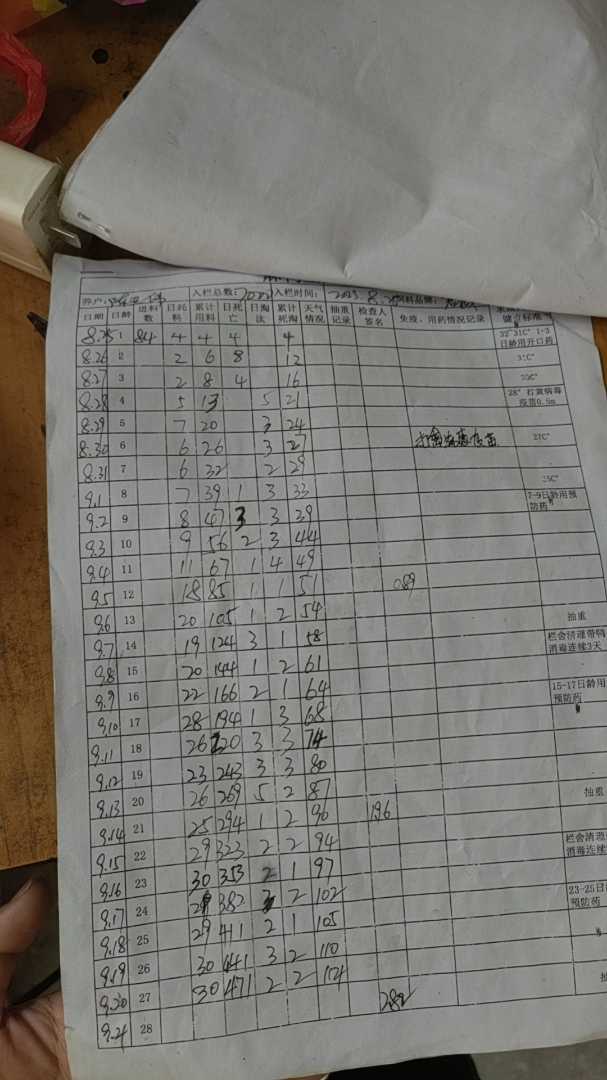 养户: 入栏总数: 入栏时间: 2023.8.25 饲料品牌:
日期 日龄 进料数 日耗料 累计用料 日死亡 日淘汰 累计死淘 天气情况 抽重记录 检查人签名 免疫、用药情况记录
8.25 1 84 4 4 4 4 32°31C° 1-3日龄用开口药
8.26 2 2 6 8 12 31C°
8.27 3 2 8 4 16
8.28 4 5 13 5 21 28°
8.29 5 7 20 3 24
8.30 6 6 26 3 27 27C°
8.31 7 6 32 2 29
9.1 8 7 39 1 3 33 7-9日龄用预防药
9.2 9 8 47 3 3 39
9.3 10 9 56 2 3 44
9.4 11 11 67 1 4 49
9.5 12 18 85 1 1 51 089
9.6 13 20 105 1 2 54 抽重
9.7 14 19 124 3 1 58 栏舍清理带鸭消毒连续3天
9.8 15 20 144 1 2 61
9.9 16 22 166 2 1 64 15-17日龄用预防药
9.10 17 28 194 1 3 68
9.11 18 26 220 3 3 74
9.12 19 23 243 3 3 80
9.13 20 26 269 5 2 87 抽重
9.14 21 25 294 1 2 90 196
9.15 22 29 323 2 2 94 栏舍清理 消毒连续
9.16 23 30 353 2 1 97
9.17 24 29 382 3 2 102 23-25日 预防药
9.18 25 29 411 2 1 105
9.19 26 30 441 3 2 110
9.20 27 30 471 2 2 114 282
9.21 28